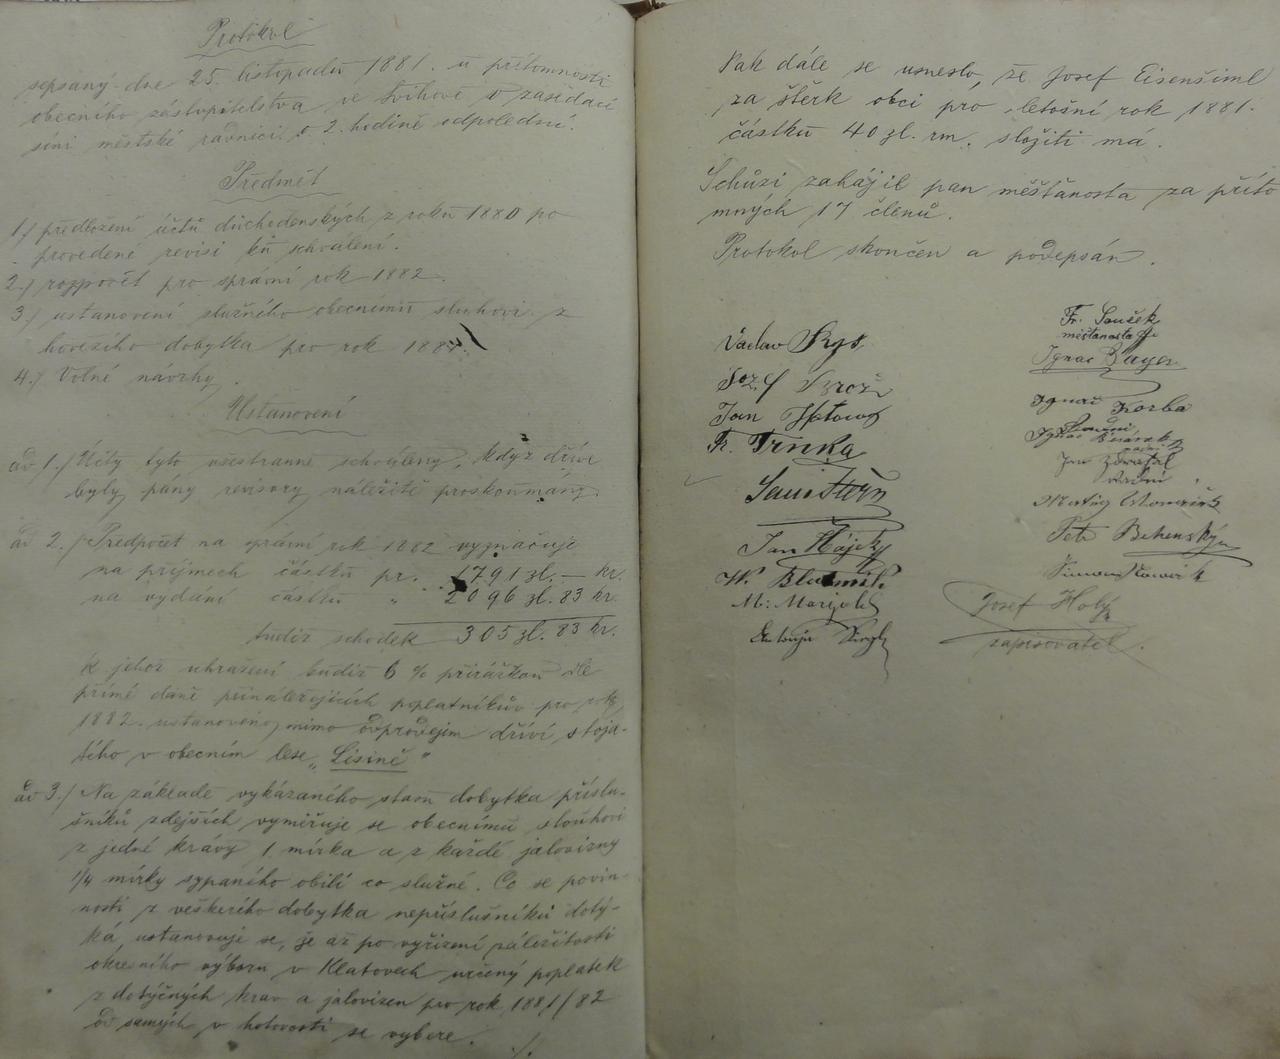 Protokol
sepsaný dne 25. listopadu 1881. u přítomnosti
obecního zastupitelstva ve Švihově v zasedací
síni městské radnici o 2. hodině odpolední.
Předmět
1./ předložení účtů důchodenských z roku 1880 po
provedené revisi ku schválení.
2./ rozpočet pro správní rok 1882.
3./ ustanovení služného obecnímu sluhovi z
hovězího dobytka pro rok 1881.
4./ Volné návrhy.
Ustanovení
ad 1./ Účty tyto všestranně schváleny, když dříve
byly pány revisory náležitě proskoumány.
ad 2./ Předpočet na správní rok 1882 vyznačuje
na příjmech částku pr. 1791 zl. — kr.
na vydání částku „ 2096 zl. 83 kr.
tudíž schodek 305 zl. 83 kr.
k jehož uhražení budiž 6 % přirážkou dle
přímé daně přináležejících poplatníkův pro rok
1882 ustanoveno, mimo odprodejem dříví stoja-
tého v obecním lese „Lisině"
ad 3./ Na základě vykázaného stavu dobytka příslu-
šníků zdejších vyměřuje se obecnímu slouhovi
z jedné krávy 1 mírka a z každé jalovizny
1/4 mírky sypaného obilí co služné. Co se povin-
nosti z veškerého dobytka nepříslušníků dotý-
ká, ustanovuje se, že až po vyřízení záležitosti
okresního výboru v Klatovech určený poplatek
z dotýčných krav a jalovizen pro rok 1881/82
od samých v hotovosti se vybere.
./.
Pak dále se usneslo, že Josef Eisenšiml
za štěrk obci pro letošní rok 1881.
částku 40 zl. rm. složiti má.
Schůzi zahájil pan měšťanosta za příto
mných 17 členů.
Protokol skončen a podepsán.
Fr. Souček
měšťanosta
Václav Rys
Ignac Bayer
Josef Brož
Ignac Korba
Jan
Ignac
Fr. Trnka
radní
Jan Zdvořal
radní
Stern
Matěj
Petr Behenský
Jan Hájek
Simon Nowák
W.
Josef Holý
M:
zapisovatel.